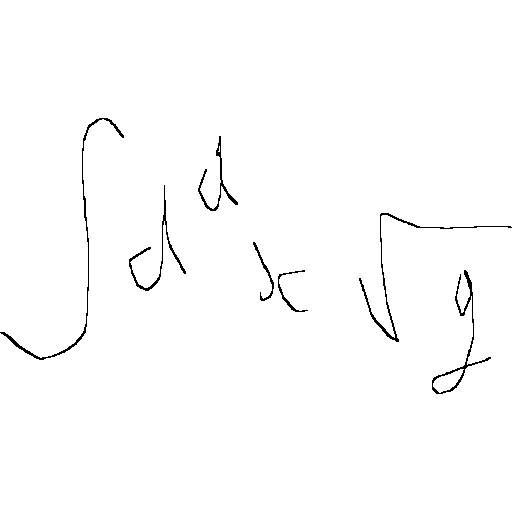 \int d^d x \sqrt{g}